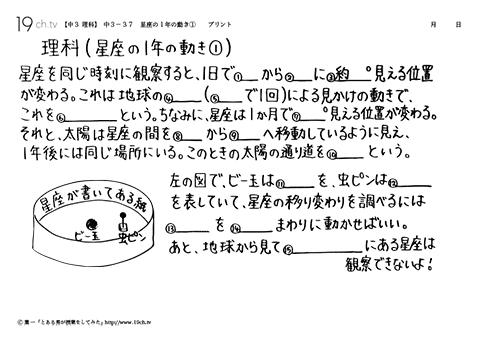 19ch.tv 【中3 理科】 中3-37 星座の1年の動き① プリント 月 日
理科(星座の1年の動き①)
星座を同じ時刻に観察すると、1日で①___から②___に③約___°見える位置
が変わる。これは地球の④______(⑤___で1回)による見かけの動きで、
これを⑥________という。ちなみに、星座は1か月で⑦___°見える位置が変わる。
それと、太陽は星座の間を⑧___から⑨___へ移動しているように見え、
1年後には同じ場所にいる。このときの太陽の通り道を⑩_____という。
左の図で、ビー玉は⑪_____を、虫ピンは⑫_____
を表していて、星座の移り変わりを調べるには
⑬_____を⑭_____まわりに動かせばいい。
あと、地球から見て⑮__________にある星座は
観察できないよ!
星座が書いてある紙
ビー玉
虫ピン
© 葉一「とある男が授業をしてみた」http://www.19ch.tv